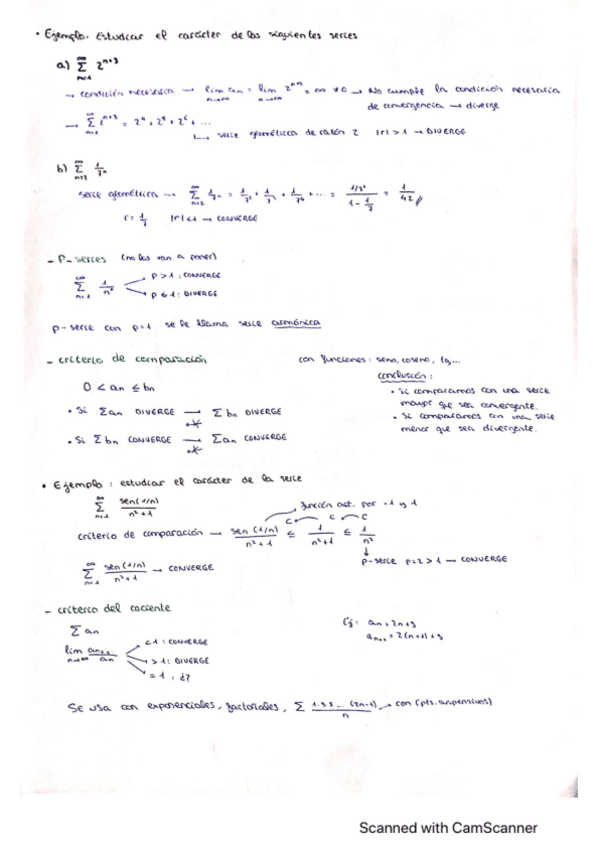 • Ejemplo. Estudiar el carácter de las siguientes series
a) ∞ Σ n=1 2^(n+3)
→ condición necesaria → lim n→∞ an = lim n→∞ 2^(n+3) = ∞ ≠ 0 → No cumple la condición necesaria
de convergencia → diverge
→ ∞ Σ n=1 2^(n+3) = 2^4 + 2^5 + 2^6 + ...
↳ serie geométrica de razón 2 |r| > 1 → DIVERGE
b) ∞ Σ n=2 1/7^n
serie geométrica → ∞ Σ n=2 1/7^n = 1/7^2 + 1/7^3 + 1/7^4 + ... = (1/7^2)/(1 - 1/7) = 1/42 //
r = 1/7 |r| < 1 → CONVERGE
- P-series (no las van a poner)
∞ Σ n=1 1/n^p
p > 1 : CONVERGE
p ≤ 1 : DIVERGE
p-serie con p=1 se le llama serie armónica
- criterio de comparación
con funciones: seno, coseno, tg...
0 < an ≤ bn
conclusión:
• Si Σan DIVERGE → Σbn DIVERGE
• Si Σbn CONVERGE → Σan CONVERGE
• Si comparamos con una serie
mayor que sea convergente.
• Si comparamos con una serie
menor que sea divergente.
• Ejemplo: estudiar el carácter de la serie
∞ Σ n=1 sen(1/n)/(n^2+1)
función acot. por -1 y 1
criterio de comparación → sen(1/n)/(n^2+1) ≤ 1/(n^2+1) ≤ 1/n^2
C C C
p-serie p=2>1 → CONVERGE
∞ Σ n=1 sen(1/n)/(n^2+1) → CONVERGE
- criterio del cociente
Σ an
Ej: an = 2n+3
an+1 = 2(n+1)+3
lim n→∞ an+1/an
<1 : CONVERGE
>1 : DIVERGE
=1 : ¿?
Se usa con exponenciales, factoriales, Σ 1·3·5...(2n-1)/n → con (pts. suspensivos)
Scanned with CamScanner